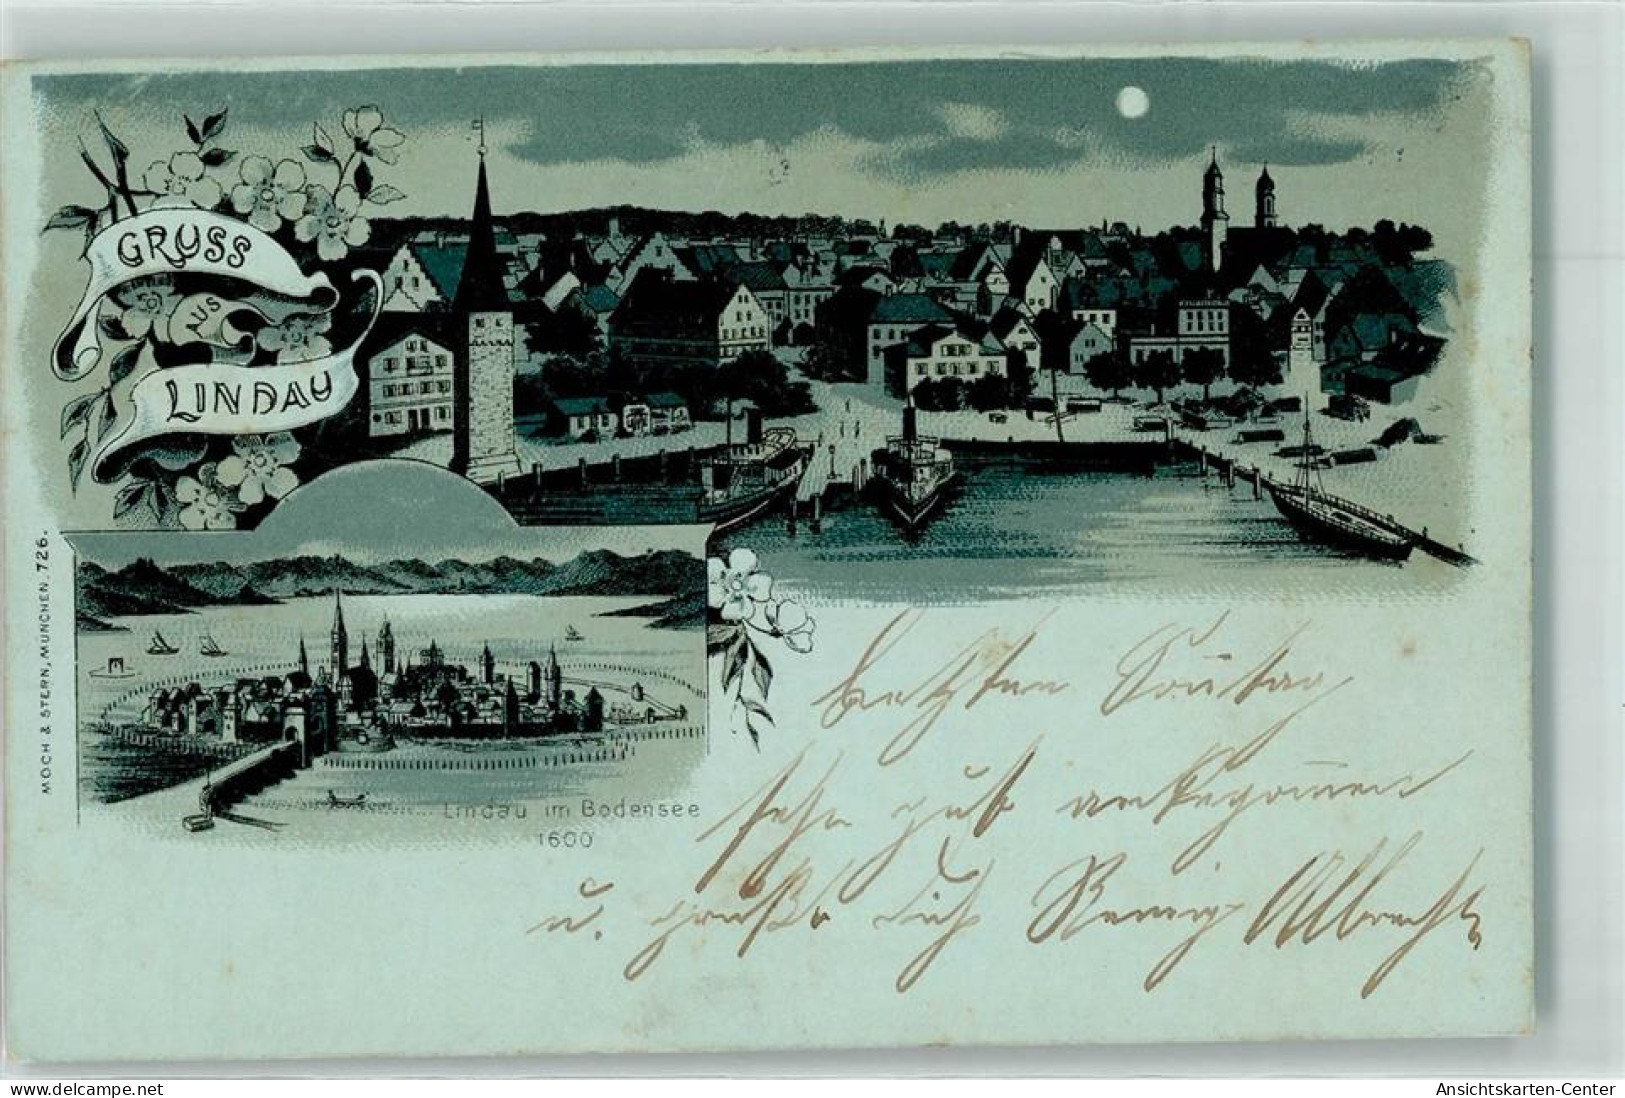 GRUSS
AUS
LINDAU
MOCH & STERN, MÜNCHEN. 726.
Lindau im Bodensee
1600
Letzten Sontag
sehr gut angekommen
u. grüße Dich Albrecht
delcampe.net
Ansichtskarten-Center